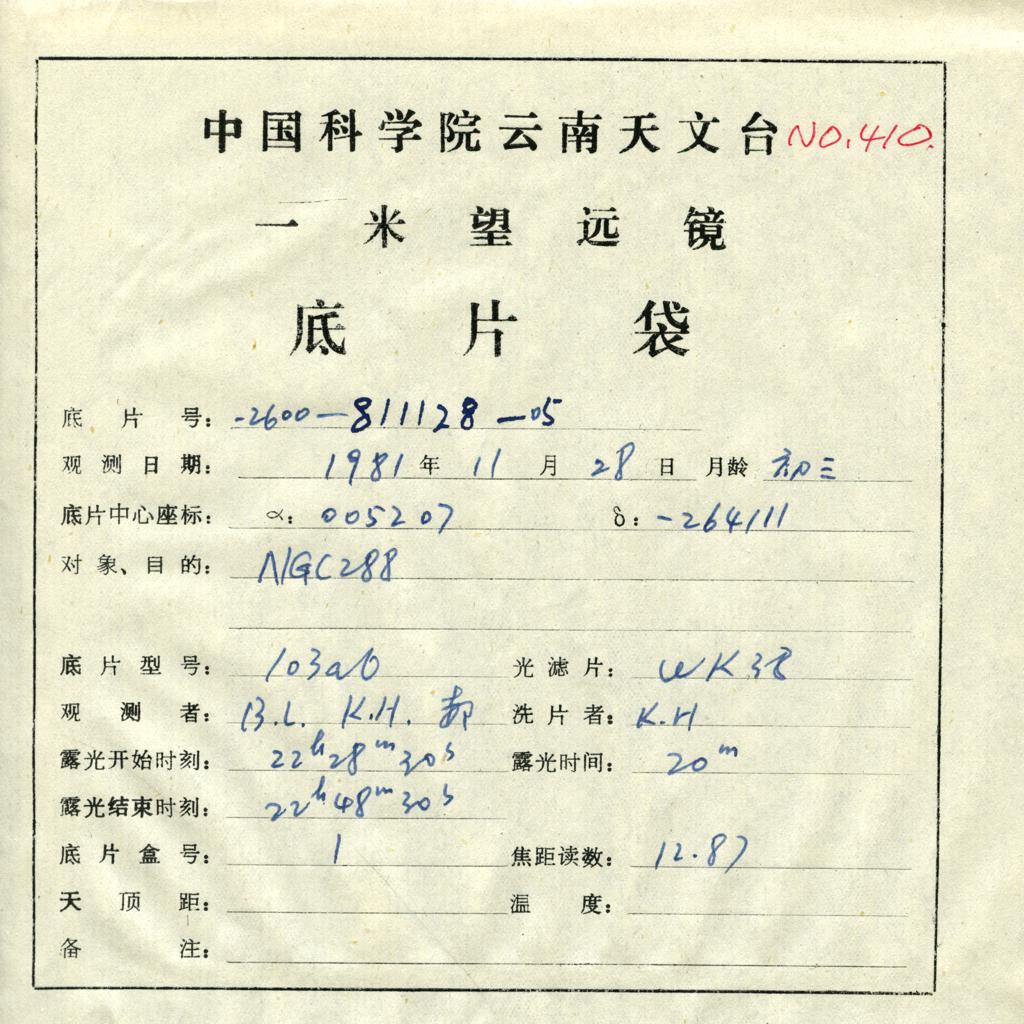 中国科学院云南天文台 NO.410.
一米望远镜
底片袋
底片号: -2600-811128-05
观测日期: 1981年11月28日 月龄 初三
底片中心座标: α: 005207 δ: -264111
对象、目的: NGC288
底片型号: 103aO 光滤片:
观测者: B.L. K.H. 洗片者: K.H
露光开始时刻: 22h28m30s 露光时间: 20m
露光结束时刻: 22h48m30s
底片盒号: 1 焦距读数: 12.87
天顶距: 温度:
备注: